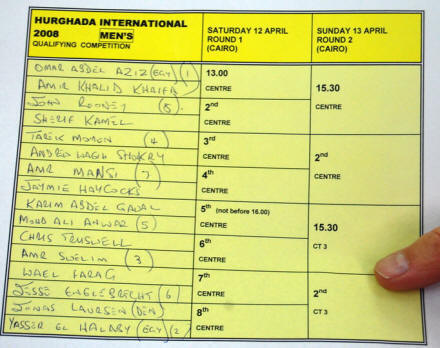 HURGHADA INTERNATIONAL
2008 MEN'S
QUALIFYING COMPETITION
SATURDAY 12 APRIL
ROUND 1
(CAIRO)
SUNDAY 13 APRIL
ROUND 2
(CAIRO)
OMAR ABDEL AZIZ (EGY) (1)
AMIR KHALID KHALIFA
JOHN ROONEY (8).
SHERIF KAMEL
TAREK MOMEN (4)
ANDREW WAGIH SHOKRY
AMR MANSI (7)
JAYMIE HAYCOCKS
KARIM ABDEL GAWAD
MOHD ALI ANWAR (5)
CHRIS TRUSWELL
AMR SWELIM (3)
WAEL FARAG
JESSE ENGELBRECHT (6)
JONAS LAURSEN (DEN)
YASSER EL HALABY (EGY) (2)
13.00
CENTRE
2nd
CENTRE
3rd
CENTRE
4th
CENTRE
5th (not before 16.00)
CENTRE
6th
CENTRE
7th
CENTRE
8th
CENTRE
15.30
CENTRE
2nd
CENTRE
15.30
CT 3
2nd
CT 3